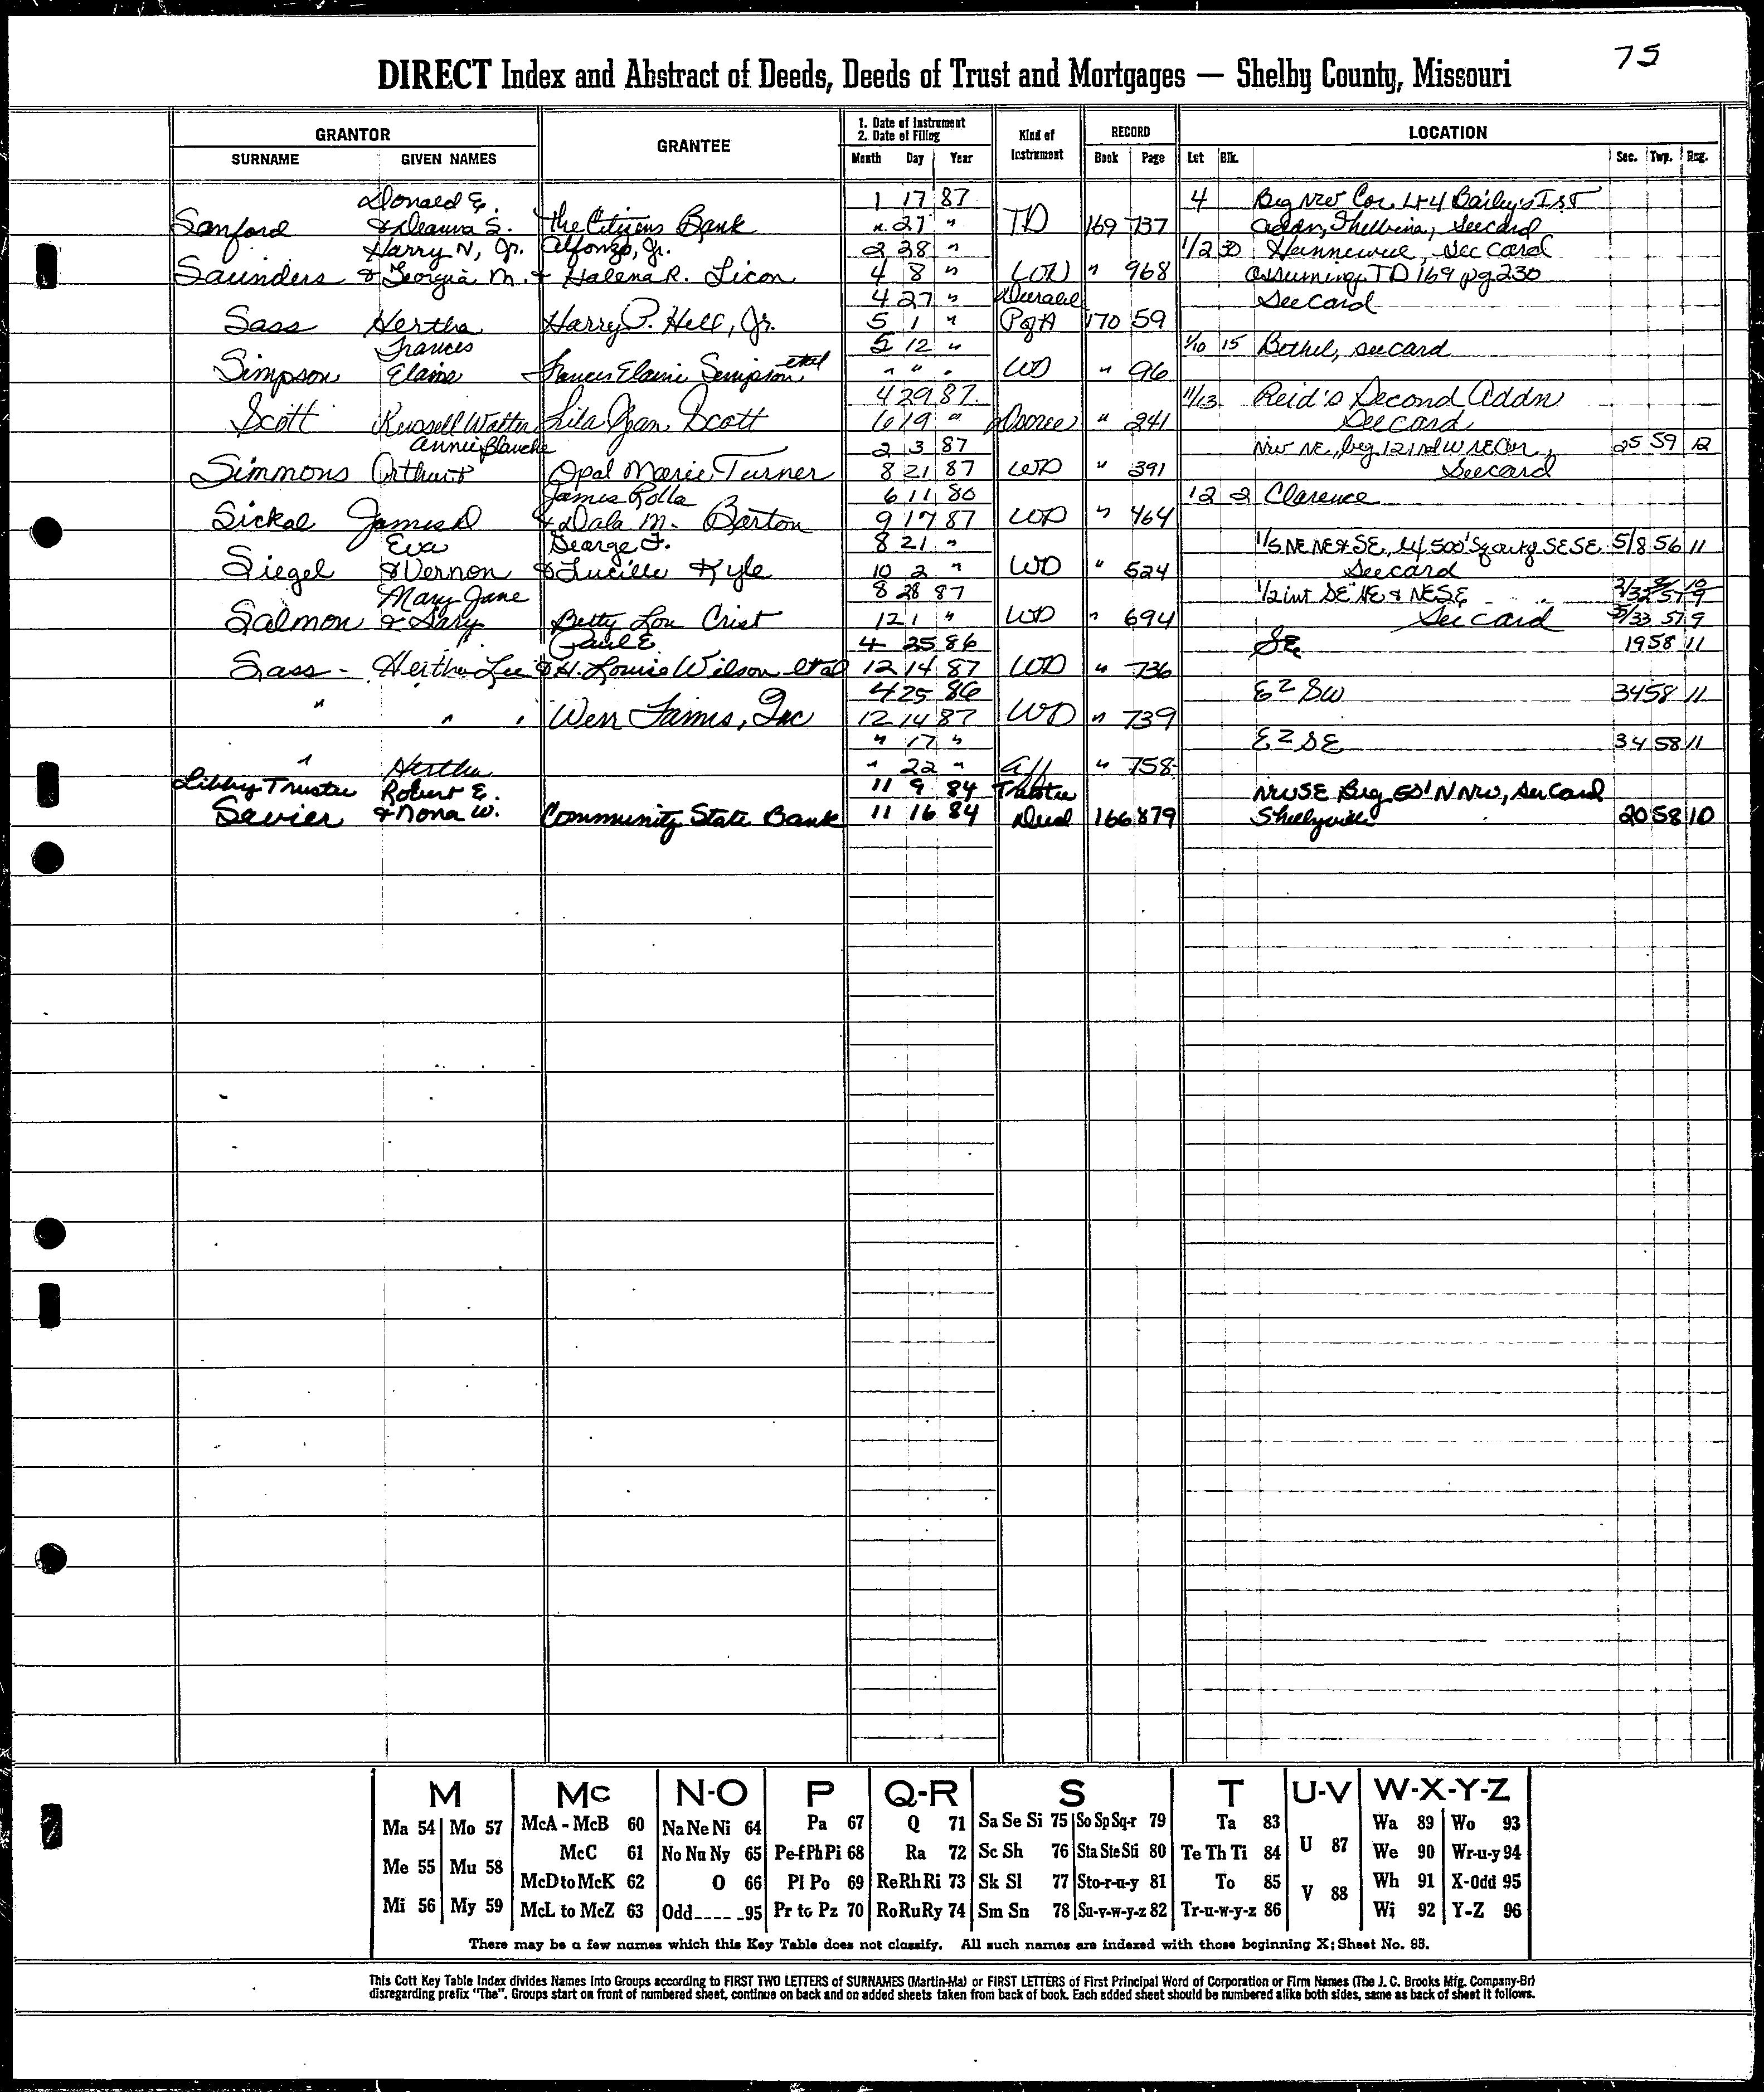 75
DIRECT Index and Abstract of Deeds, Deeds of Trust and Mortgages — Shelby County, Missouri
GRANTOR GRANTEE 1. Date of Instrument 2. Date of Filing Kind of Instrument RECORD LOCATION
SURNAME GIVEN NAMES Month Day Year Book Page Lot Blk. Sec. Twp. Rng.
Donald E. 1 17 87 4 Beg NW Cor Lt 4 Baily's 1st
Sanford & Deanna S. The Citizens Bank " 27 " TD 169 737 Addn, Shelbina, See card
Harry N, Jr. Alfonzo, Jr. 2 28 " 1/2 30 Hunnewell, See card
Saunders & Georgia M. & Halena R. Licon 4 8 " WD " 968 assuming TD 169 pg 230
4 27 " Durable See card
Sass Hertha Harry P. Hell, Jr. 5 1 " P of A 170 59
Frances 5 12 " 1/10 15 Bethel, see card
Simpson Elaine Frances Elaine Simpson etal " " " WD " 96
4 29 87 11/13 Reid's Second Addn
Scott Russell Walter Lila Jean Scott 6 19 " " 241 See card
Annie Blanche 2 3 87 NW NE, beg 12 1 rd W NE Cor, 25 59 12
Simmons Arthur & Opal Marie Turner 8 21 87 WD " 391 See card
James Rolla 6 11 80 12 2 Clarence
Sickal James D & Dala M. Barton 9 17 87 WD " 464
Eva George F. 8 21 " 1/5 NE NE & SE, 500' Sq SE SE 5/8 56 11
Siegel & Vernon & Lucille Kyle 10 2 " WD " 524 See card
Mary Jane 8 28 87 1/2 int SE NE & NE SE
Salmon & Gary Betty Lou Crist 12 1 " WD " 694 See card 57 9
Paul E. 4 25 86 SE 19 58 11
Sass - Hertha Lee & H. Louise Wilson etal 12 14 87 WD " 736
4 25 86 E 2 SW 34 58 11
" " " Werr Farms, Inc 12 14 87 WD " 739
" 17 " E 2 SE 34 58 11
" Hertha " 22 " Aff " 758
Libby Trustee Robert E. 11 9 84 Trustee NW SE Beg 50' N NW, See Card
Sevier & Nona W. Community State Bank 11 16 84 Deed 166 879 Shelbyville 20 58 10
M Mc N-O P Q-R S T U-V W-X-Y-Z
Ma 54 Mo 57 McA - McB 60 Na Ne Ni 64 Pa 67 Q 71 Sa Se Si 75 So Sp Sq-r 79 Ta 83 U 87 Wa 89 Wo 93
Me 55 Mu 58 McC 61 No Nu Ny 65 Pe-f Ph Pi 68 Ra 72 Sc Sh 76 Sta Ste Sti 80 Te Th Ti 84 V 88 We 90 Wr-u-y 94
McD to McK 62 O 66 Pl Po 69 Re Rh Ri 73 Sk Sl 77 Sto-r-u-y 81 To 85 Wh 91 X-Odd 95
Mi 56 My 59 McL to McZ 63 Odd____95 Pr to Pz 70 Ro Ru Ry 74 Sm Sn 78 Su-v-w-y-z 82 Tr-u-w-y-z 86 Wi 92 Y-Z 96
There may be a few names which this Key Table does not classify. All such names are indexed with those beginning X; Sheet No. 95.
This Cott Key Table Index divides Names into Groups according to FIRST TWO LETTERS of SURNAMES (Martin-Ma) or FIRST LETTERS of First Principal Word of Corporation or Firm Names (The J. C. Brooks Mfg. Company-Br)
disregarding prefix "The". Groups start on front of numbered sheet, continue on back and on added sheets taken from back of book. Each added sheet should be numbered alike both sides, same as back of sheet it follows.